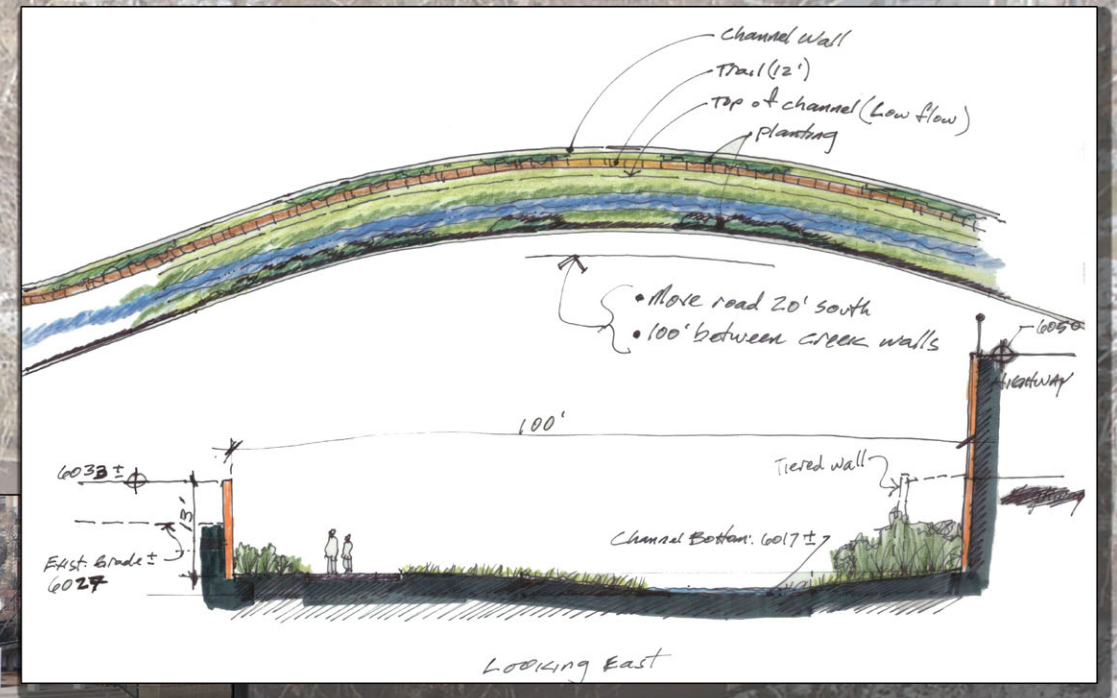 Channel Wall
Trail (12')
Top of channel (Low flow)
planting
• Move road 20' south
• 100' between creek walls
6050
HIGHWAY
100'
6033 ±
13'
Tiered wall
Channel Bottom: 6017 ±
Exist. Grade ±
6027
Looking East